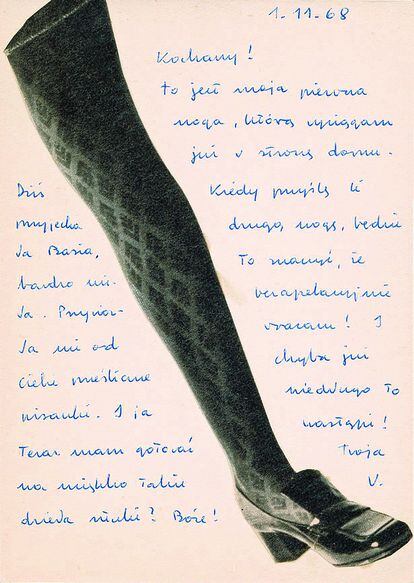 1-11-68
Kochany!
to jest moja pierwsza
noga, którą wyciągam
już w stronę domu.
Kiedy wyślę Ci
drugą nogę, będzie
to znaczyć, że
bezapelacyjnie
wracam! I
chyba już
niedługo to
nastąpi!
Twoja
V.
Dziś
przyjecha
ła Basia,
bardzo mi-
ła. Przynio-
sła mi od
Ciebie prześliczne
pisanki. I ja
teraz mam gotować
na miękko takie
dzieła sztuki? Boże!